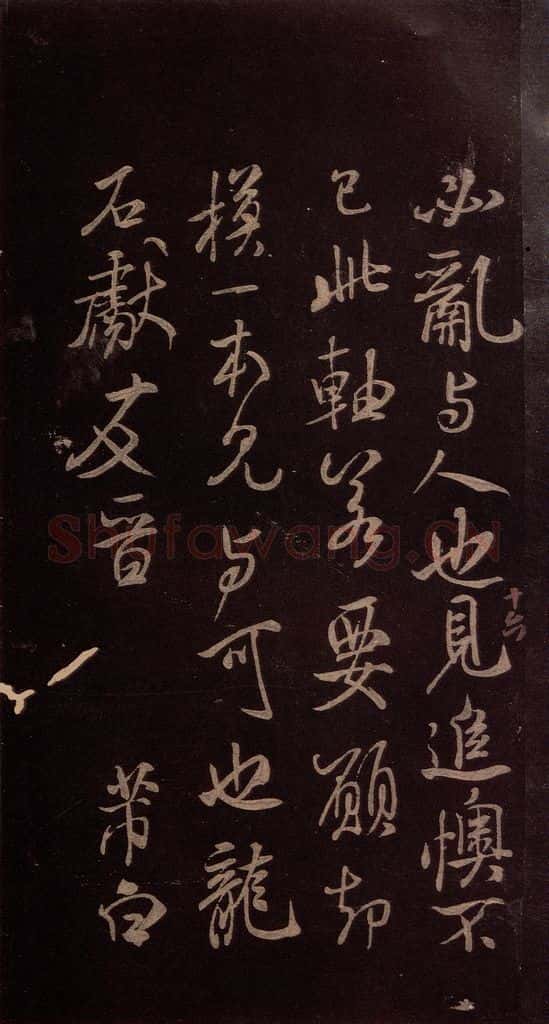 必亂与人也見追懊不
已此軸若要願却
模一本見与可也龍
石獻友晋
芾白
十六
Shufawang.cn